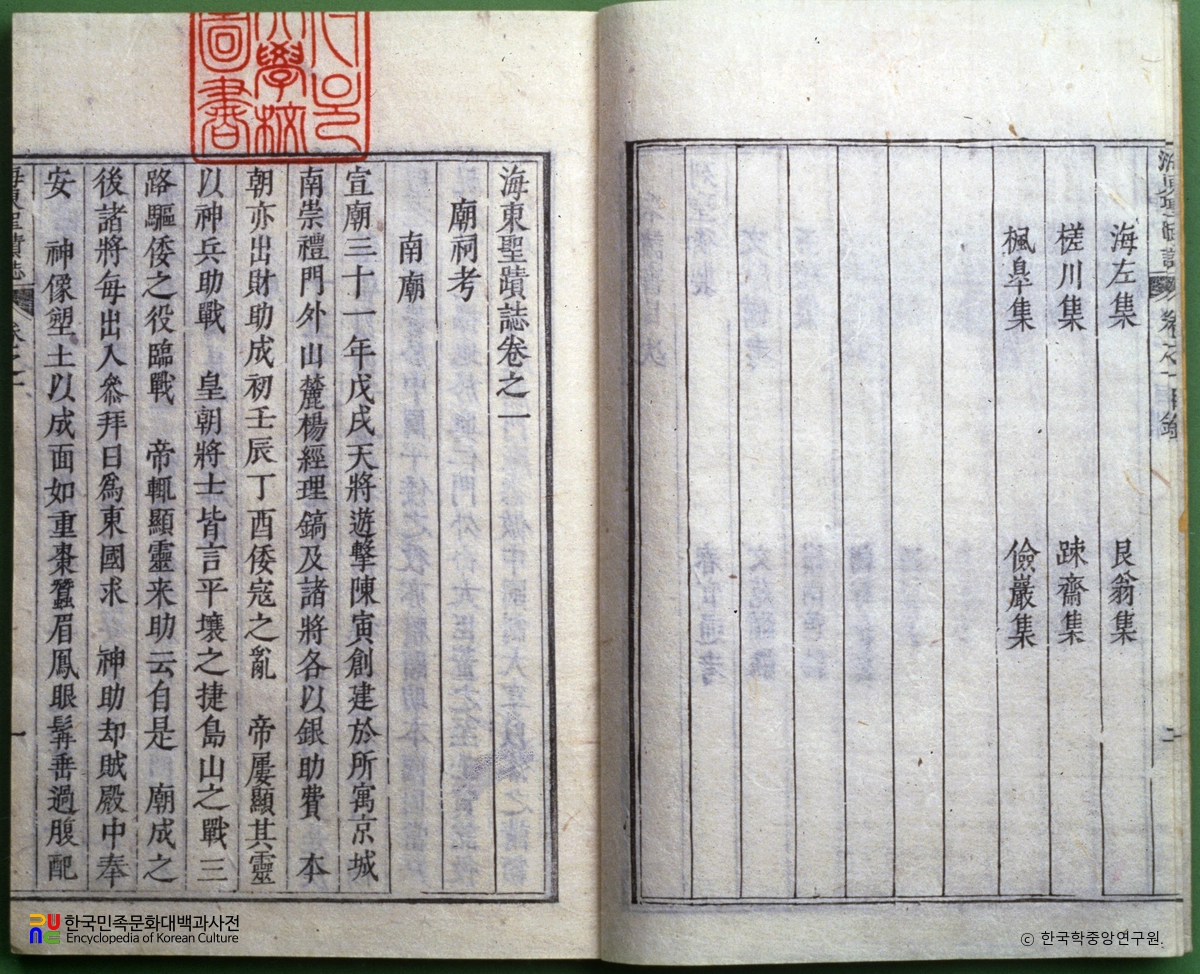 海東聖蹟誌 卷之一目錄 二
海左集 艮翁集
槎川集 疎齋集
楓皐集 儉巖集
學校
圖書
海東聖蹟誌卷之一
廟祠考
南廟
宣廟三十一年戊戌天將遊擊陳寅創建於所寓京城
南崇禮門外山麓楊經理鎬及諸將各以銀助費 本
朝亦出財助成初壬辰丁酉倭寇之亂 帝屢顯其靈
以神兵助戰 皇朝將士皆言平壤之捷島山之戰三
路驅倭之役臨戰 帝輒顯靈来助云自是 廟成之
後諸將每出入叅拜曰爲東國求 神助却賊殿中奉
安 神像塑土以成面如重棗蠶眉鳳眼髯垂過腹配
海東聖蹟誌 卷之一 一
한국민족문화대백과사전
Encyclopedia of Korean Culture
© 한국학중앙연구원.